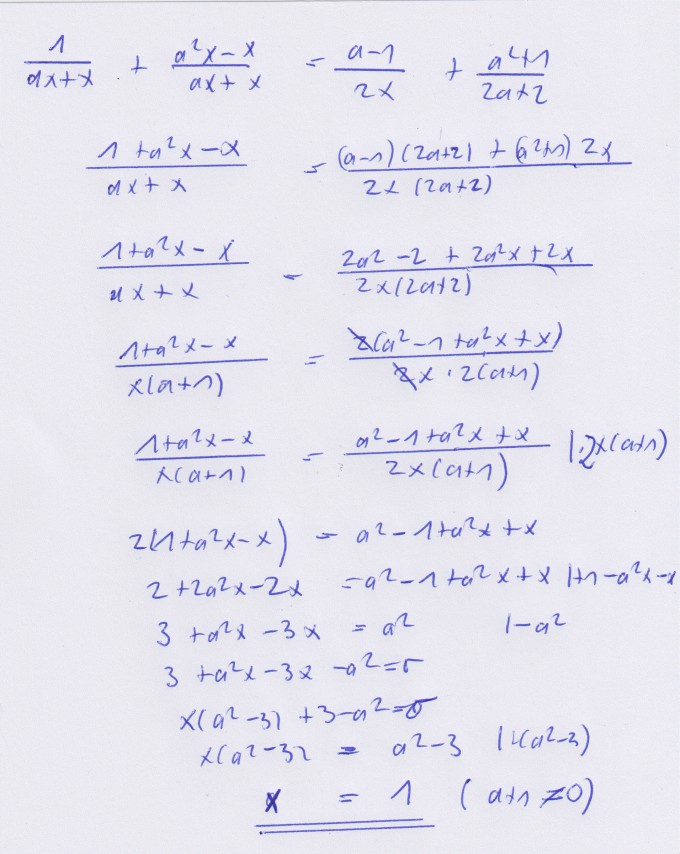 1/(ax+x) + (a²x-x)/(ax+x) = (a-1)/(2x) + (a²+1)/(2a+2)
(1+a²x-x)/(ax+x) = ((a-1)(2a+2)+(a²+1)2x)/(2x(2a+2))
(1+a²x-x)/(ax+x) = (2a²-2+2a²x+2x)/(2x(2a+2))
(1+a²x-x)/(x(a+1)) = (2(a²-1+a²x+x))/(2x·2(a+1))
(1+a²x-x)/(x(a+1)) = (a²-1+a²x+x)/(2x(a+1)) |·2x(a+1)
2(1+a²x-x) = a²-1+a²x+x
2+2a²x-2x = a²-1+a²x+x |+1-a²x-x
3+a²x-3x = a² |-a²
3+a²x-3x-a²=0
x(a²-3)+3-a²=0
x(a²-3) = a²-3 |:(a²-3)
x = 1 (a+1≠0)